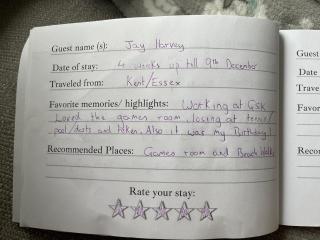 Guest name (s): Jay Harvey
Date of stay: 4 weeks up till 9th December
Traveled from: Kent/Essex
Favorite memories/ highlights: Working at GSK
Loved the games room, losing at tennis/
pool/darts and . Also it was my Birthday!
Recommended Places: Games room and Beach Walks
Rate your stay:
Guest
Date
Trave
Favor
Reco